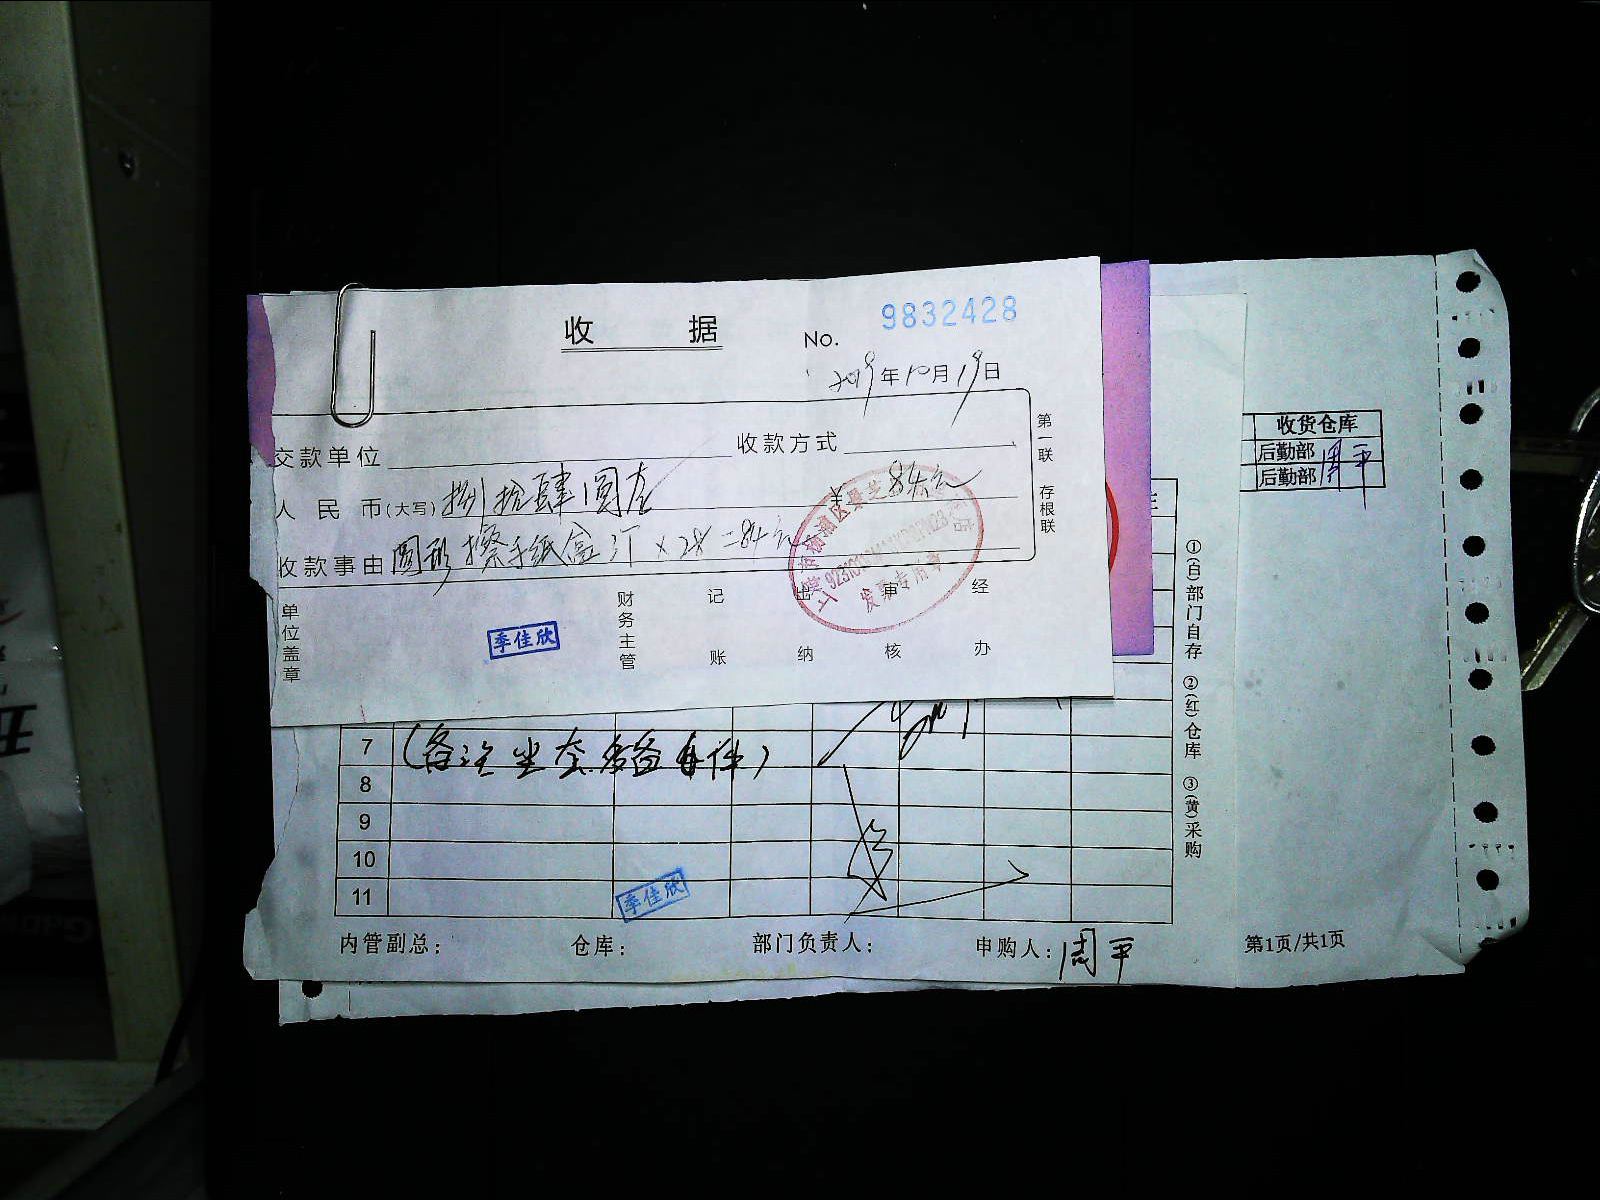 收 据
No. 9832428
2019年10月19日
交款单位 收款方式
人民币(大写) 捌拾肆圆整 ¥ 84元
收款事由 圆形擦手纸盒 3个×28=84元
第一联 存根联
单位盖章
季佳欣
财务主管
记账
出纳
审核
经办
发票专用章
收货仓库
后勤部 周平
后勤部 周平
①(白)部门自存 ②(红)仓库 ③(黄)采购
7
8
9
10
11
季佳欣
内管副总: 仓库: 部门负责人: 申购人: 周平
第1页/共1页